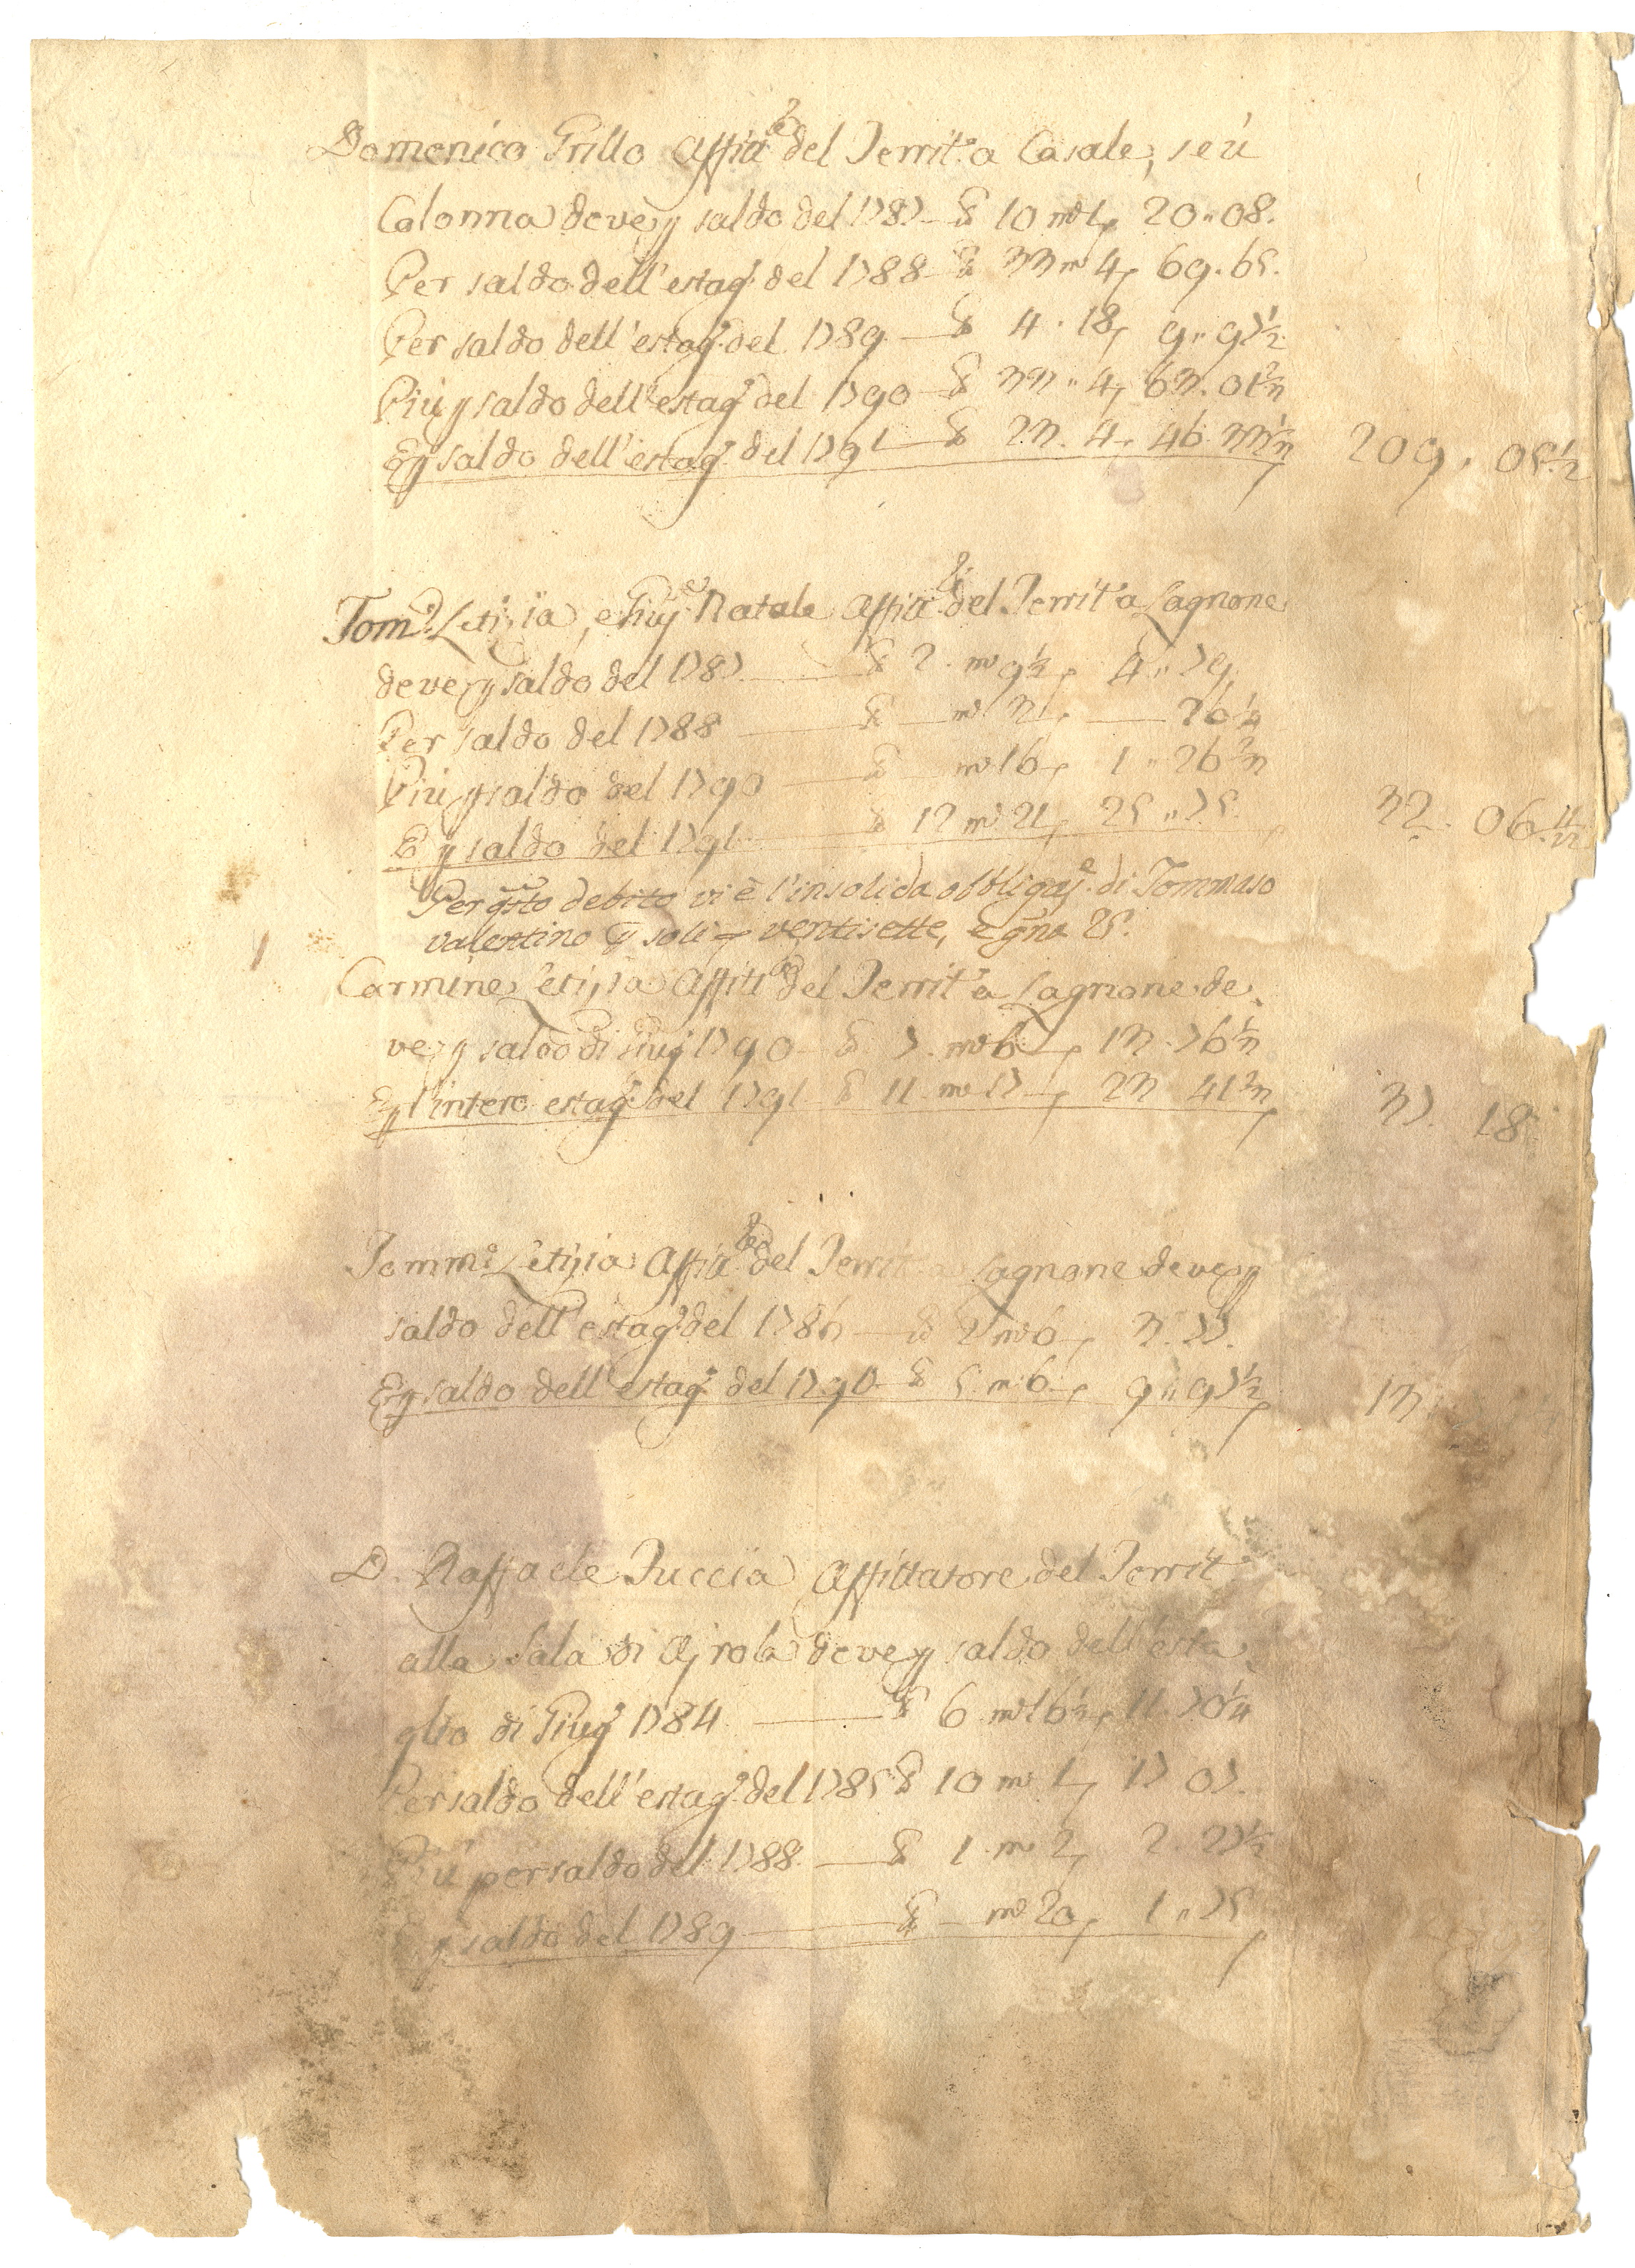 Domenico Grillo Affitt.re del Territ.o a Casale, seù
Colonna deve p saldo del 1787 — t 10 m 1, 20 " 08.
Per saldo dell'estag.o del 1788 — t 33 m 4, 69. 65.
Per saldo dell'estag.o del 1789 — t 4 . 18, 9 " 97½
Più p saldo dell'estag.o del 1790 — t 33 " 4, 63. 01⅔
E p saldo dell'estag.o del 1791 — t 23. 4, 46. 33⅓ 209 . 05½
Tom.o Letizia, e Giuj.e Natale Affitt.ri del Territ.o a Lagnone
deve p saldo del 1787 — t 2 . m 9½, 4 " 79.
Per saldo del 1788 — t — m 3, — 26¼
Più p saldo del 1790 — t — m 16, 1 " 26⅔
E p saldo del 1791 — t 12 m 21, 25 " 75. 32 . 06
Per q̃sto debito vi è l'insolida obbligaz.e di Tommaso
Valentino p soli ventisette, e gña 25.
Carmine Letizia Affitt.re del Territ.o a Lagnone de
ve p saldo di Giug.o 1790 — t 7. m 6, 13. 76⅓
E p l'intero estag.o del 1791 t 11. m 17, 23 41⅔ 37. 18
Tomm.o Letizia Affitt.re del Territ.o a Lagnone deve p
saldo dell'estag.o del 1786 — t 2 m 6, 3. 77.
E p saldo dell'estag.o del 1790 t 5. m 6, 9 " 97½ 13
D. Raffaele Tuccia Affittatore del Territ.o
alla Sala di Ajrola deve p saldo dell'esta
glio di Giug.o 1784 — t 6 m 16½, 11. 70¼
Per saldo dell'estag.o del 1785 t 10 m 1, 17 07.
Più per saldo del 1788. — t 1. m 2, 2. 27½
E p saldo del 1789 — t — m 20, 1 " 75